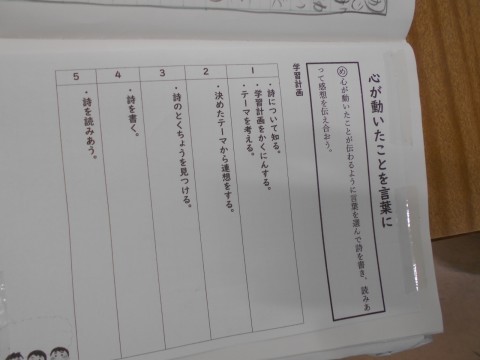 心が動いたことを言葉に
め 心が動いたことが伝わるように言葉を選んで詩を書き、読みあ
って感想を伝え合おう。
学習計画
1
・詩について知る。
・学習計画をかくにんする。
・テーマを考える。
2
・決めたテーマから連想をする。
3
・詩のとくちょうを見つける。
4
・詩を書く。
5
・詩を読みあう。